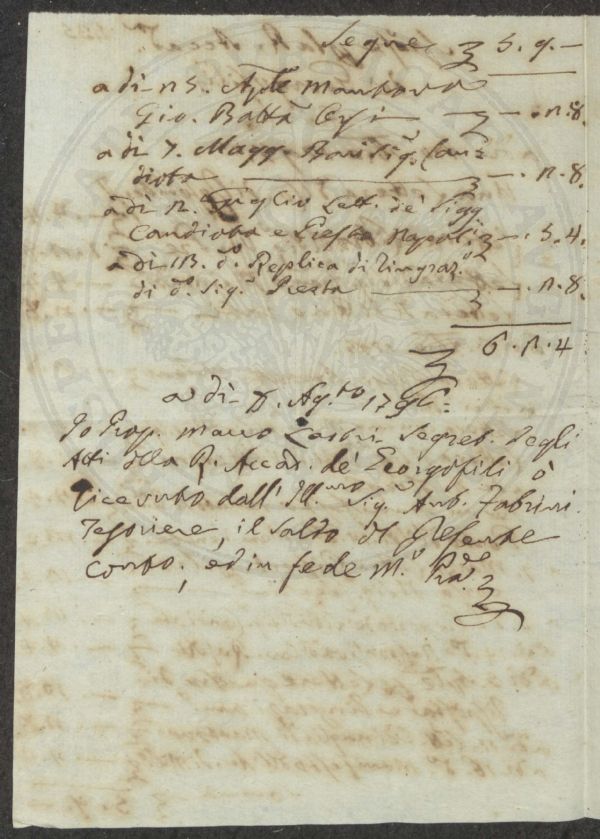 Segue £ 5. 9. —
a dì 15. Ap.le Mandorla
Gio. Batta — £ — . 11. 8.
a dì 7. Magg. Can=
diota — £ — . 11. 8.
a dì 12. Luglio Lett. de' Sigg.
Candiota e Presta Napoli £ — . 5. 4.
a dì 13. d.o Replica di ringraz.o
di d.o Sig.r Presta — £ — . 11. 8.
£ 6. 12. 4
a dì Ag.sto 1796:
Io Prop. Marco Lastri Segret. degli
Atti della R. Accad. de' Georgofili ò
ricevuto dall' Ill.mo Sig.r Ant. Fabrini
Tesoriere, il saldo del presente
conto, ed in fede M.o Pra.